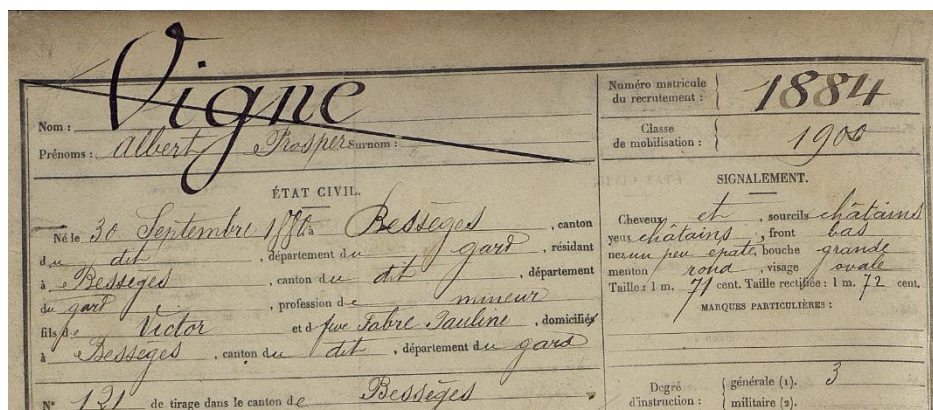 Vigne
Nom :
Prénoms : Albert Prosper Surnom :
ÉTAT CIVIL.
Né le 30 Septembre 1880 à Bessèges, canton
du dit, département du gard, résidant
à Bessèges, canton du dit, département
du gard, profession de mineur
fils de Victor et d feue Fabre Pauline, domiciliés
à Bessèges, canton du dit, département du gard
N° 131 de tirage dans le canton de Bessèges
Numéro matricule
du recrutement : 1884
Classe
de mobilisation : 1900
SIGNALEMENT.
Cheveux et, sourcils châtains
yeux châtains, front bas
nez un peu épaté, bouche grande
menton rond, visage ovale
Taille : 1 m. 71 cent. Taille rectifiée : 1 m. 72 cent.
MARQUES PARTICULIÈRES :
Degré
d'instruction :
générale (1). 3
militaire (2).